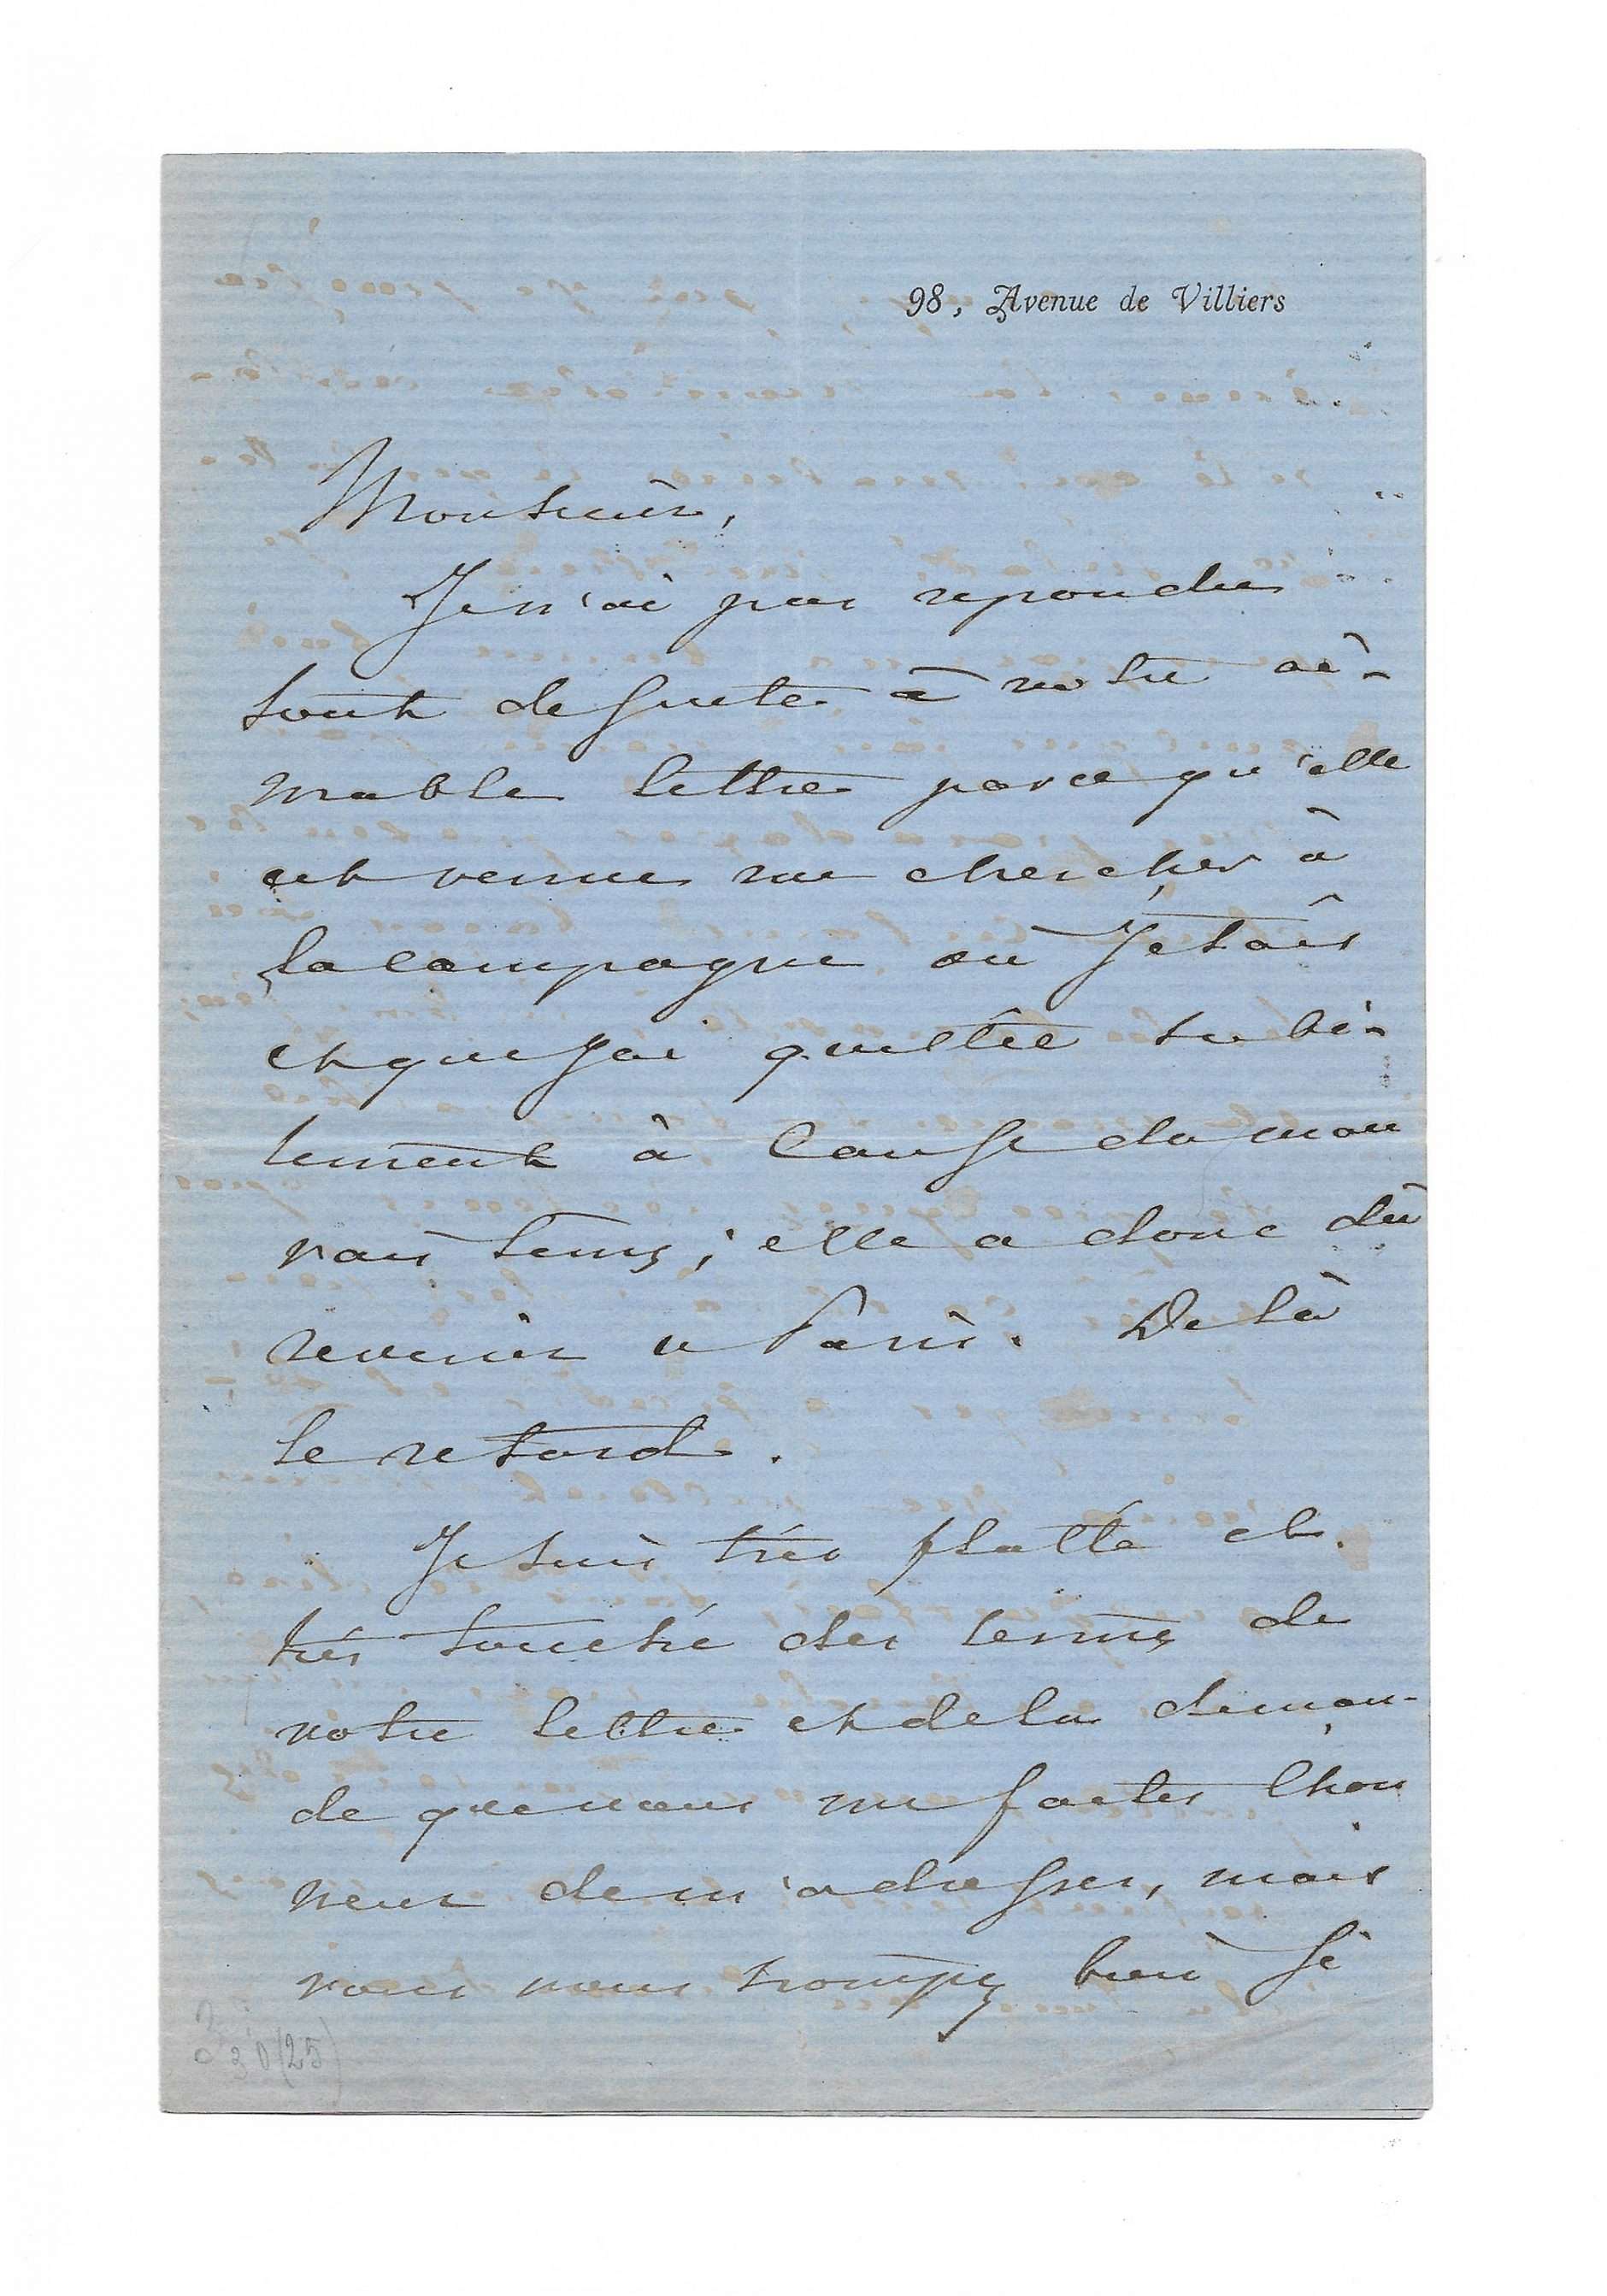 98, Avenue de Villiers
Monsieur,
Je n'ai pas repondu
tout de suite à votre ai-
mable lettre parce qu'elle
est venue me chercher à
la campagne où j'etais
et que jai quitté subi-
tement à cause du mau
vais tems; elle a donc dû
revenir a Paris. De là
le retard.
Je suis très flatté et
très touché des termes de
votre lettre et de la deman-
de que vous me faites lhon
neur de m'adresser, mais
vous vous trompez bien si
30(25)